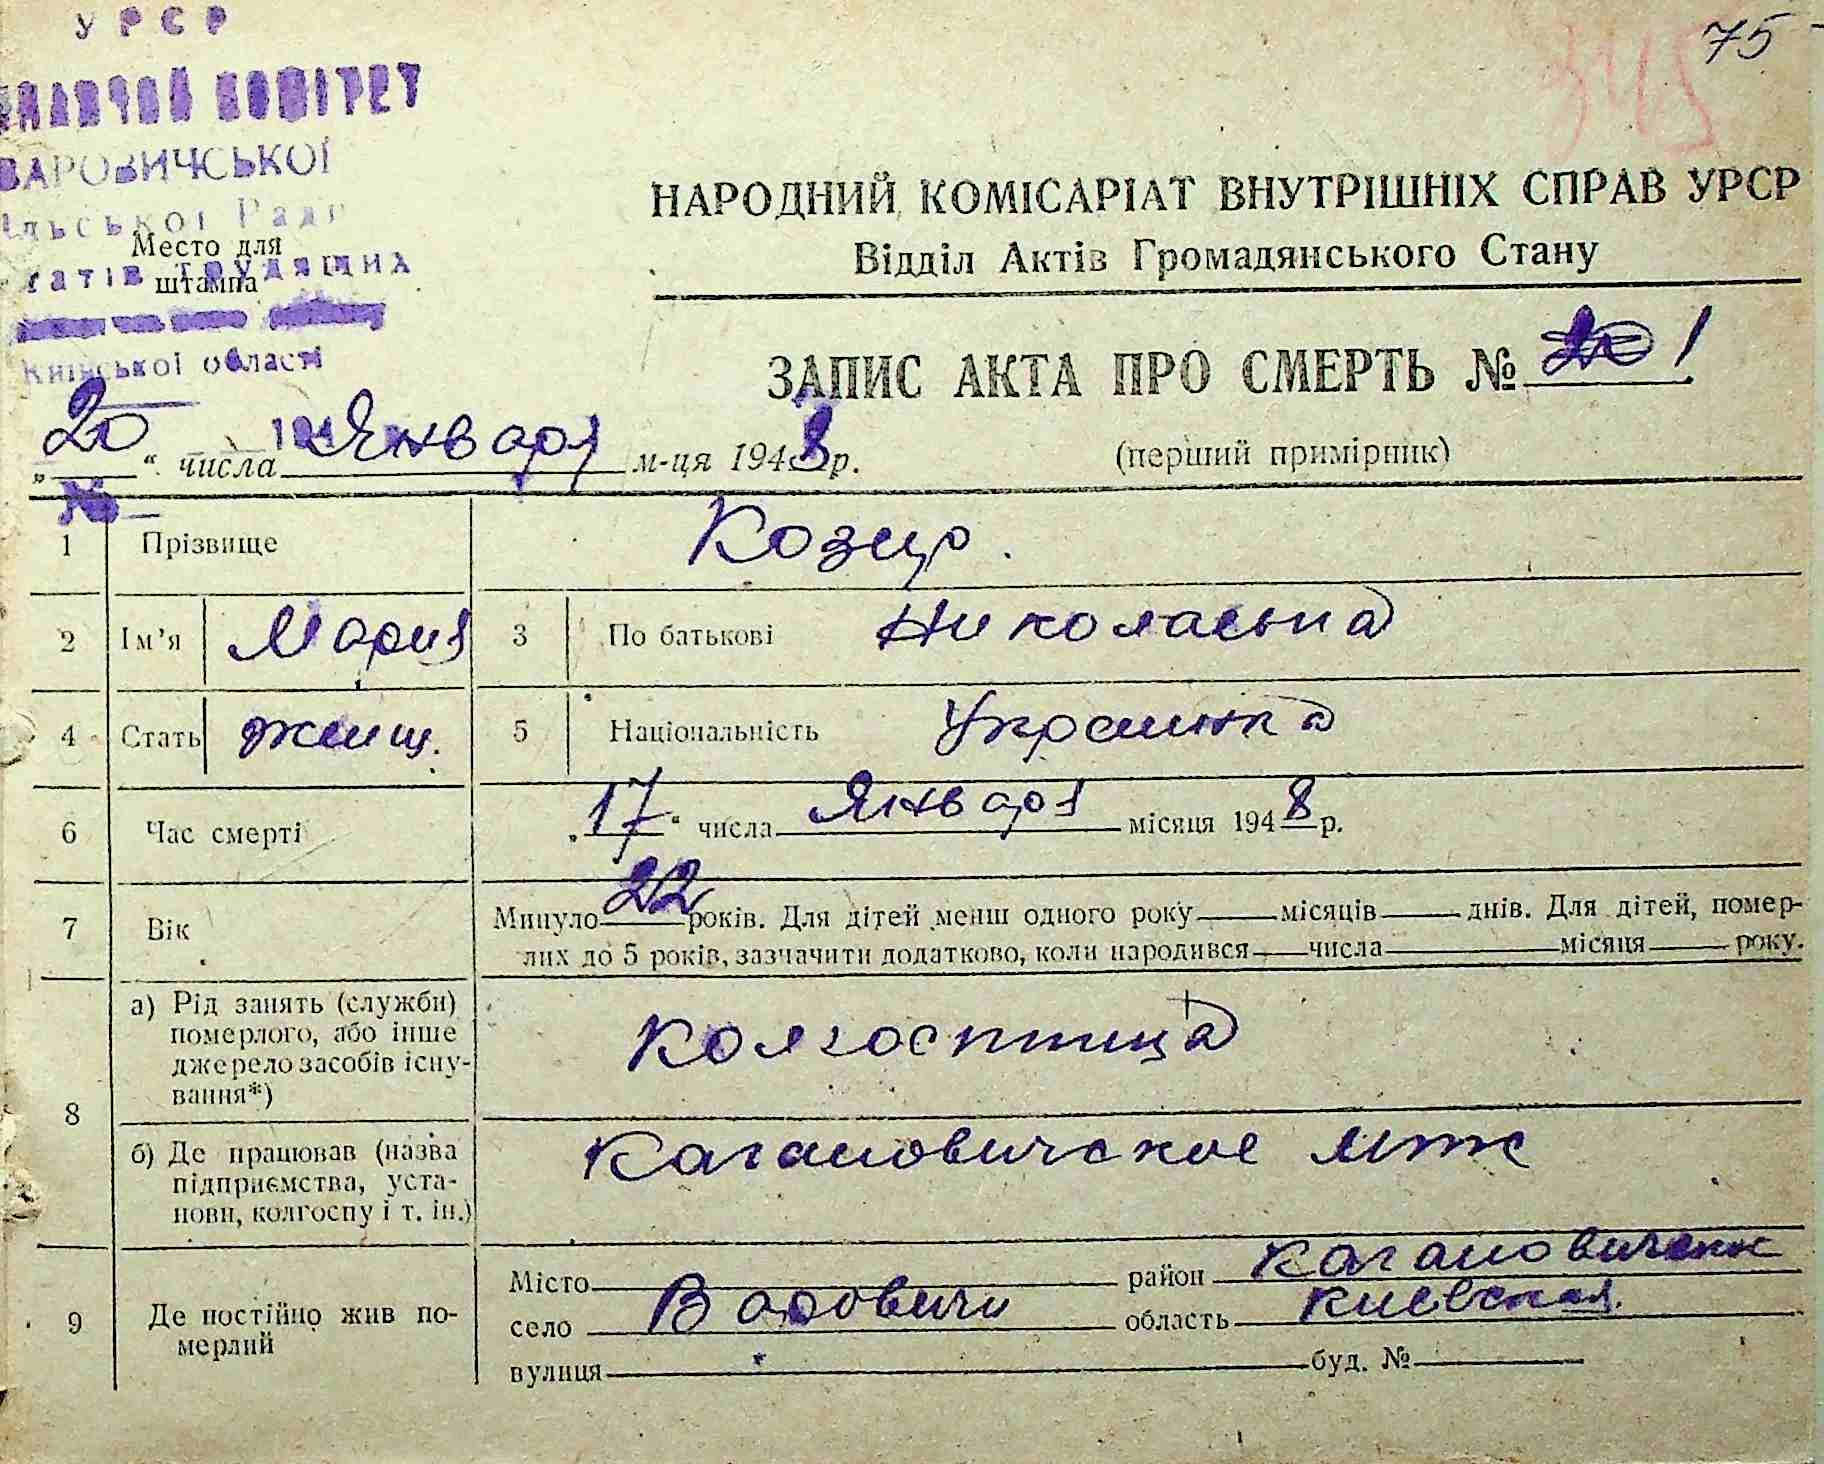 УРСР
КОМІТЕТ
ВАРОВИЧСЬКОЇ
Ради
Место для
штампа
трудящих
Київської області
75
345
НАРОДНИЙ КОМІСАРІАТ ВНУТРІШНІХ СПРАВ УРСР
Відділ Актів Громадянського Стану
ЗАПИС АКТА ПРО СМЕРТЬ № 1
(перший примірник)
„20“ числа Января м-ця 1948 р.
1 Прізвище Козец
2 Ім’я Мария 3 По батькові Николаевна
4 Стать женщ. 5 Національність Украинка
6 Час смерті „17“ числа Января місяця 1948 р.
7 Вік Минуло 22 років. Для дітей менш одного року місяців днів. Для дітей, помер-
лих до 5 років, зазначити додатково, коли народився числа місяця року.
8 а) Рід занять (служби)
померлого, або інше
джерело засобів існу-
вання*)
Колгоспница
б) Де працював (назва
підприємства, уста-
нови, колгоспу і т. ін.)
Кагановичское
9 Де постійно жив по-
мерлий
Місто район Кагановичск
село Варовичи область Киевская
вулиця буд. №